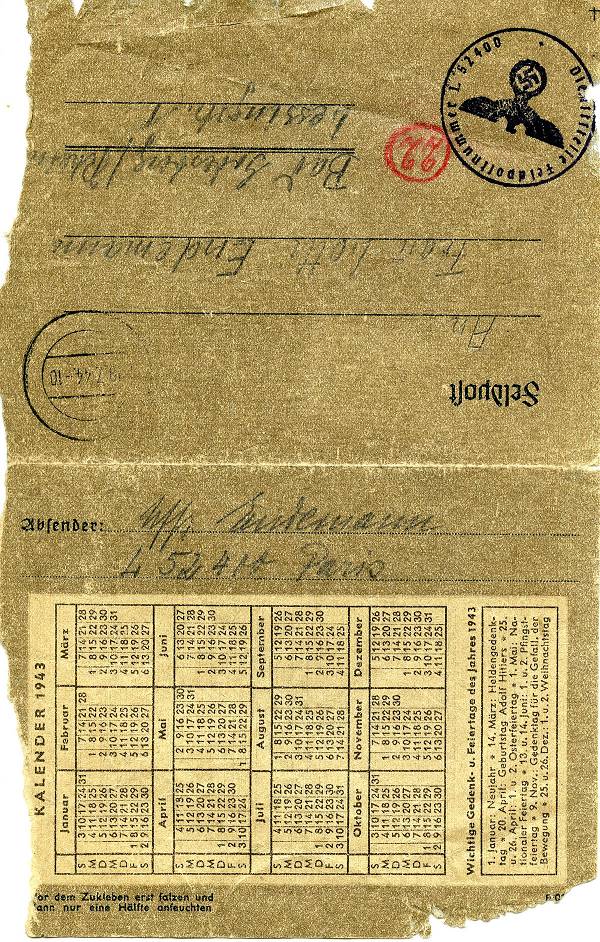 Dienststelle Feldpostnummer L 52400
22
Feldpost
.7.44.-10
An
Frau Lotte Endemann
Bad Godesberg / Rhein
Lessingstr. 1
Absender: Uffz. Endemann
L 52400 Paris
KALENDER 1943
Januar Februar März
S 3 10 17 24 31 7 14 21 28 7 14 21 28
M 4 11 18 25 1 8 15 22 1 8 15 22 29
D 5 12 19 26 2 9 16 23 2 9 16 23 30
M 6 13 20 27 3 10 17 24 3 10 17 24 31
D 7 14 21 28 4 11 18 25 4 11 18 25
F 1 8 15 22 29 5 12 19 26 5 12 19 26
S 2 9 16 23 30 6 13 20 27 6 13 20 27
April Mai Juni
S 4 11 18 25 2 9 16 23 30 6 13 20 27
M 5 12 19 26 3 10 17 24 31 7 14 21 28
D 6 13 20 27 4 11 18 25 1 8 15 22 29
M 7 14 21 28 5 12 19 26 2 9 16 23 30
D 1 8 15 22 29 6 13 20 27 3 10 17 24
F 2 9 16 23 30 7 14 21 28 4 11 18 25
S 3 10 17 24 1 8 15 22 29 5 12 19 26
Juli August September
S 4 11 18 25 1 8 15 22 29 5 12 19 26
M 5 12 19 26 2 9 16 23 30 6 13 20 27
D 6 13 20 27 3 10 17 24 31 7 14 21 28
M 7 14 21 28 4 11 18 25 1 8 15 22 29
D 1 8 15 22 29 5 12 19 26 2 9 16 23 30
F 2 9 16 23 30 6 13 20 27 3 10 17 24
S 3 10 17 24 31 7 14 21 28 4 11 18 25
Oktober November Dezember
S 3 10 17 24 31 7 14 21 28 5 12 19 26
M 4 11 18 25 1 8 15 22 29 6 13 20 27
D 5 12 19 26 2 9 16 23 30 7 14 21 28
M 6 13 20 27 3 10 17 24 1 8 15 22 29
D 7 14 21 28 4 11 18 25 2 9 16 23 30
F 1 8 15 22 29 5 12 19 26 3 10 17 24 31
S 2 9 16 23 30 6 13 20 27 4 11 18 25
Wichtige Gedenk- u. Feiertage des Jahres 1943
1. Januar: Neujahr * 14. März: Heldengedenk-
tag * 20. April: Geburtstag Adolf Hitlers * 25.
u. 26. April: 1. u. 2. Osterfeiertag * 1. Mai: Na-
tionaler Feiertag * 13. u. 14. Juni: 1. u. 2. Pfingst-
feiertag * 9. Nov.: Gedenktag für die Gefall. der
Bewegung * 25. u. 26. Dez. 1. u. 2. Weihnachtstag
Vor dem Zukleben erst falzen und
dann nur eine Hälfte anfeuchten